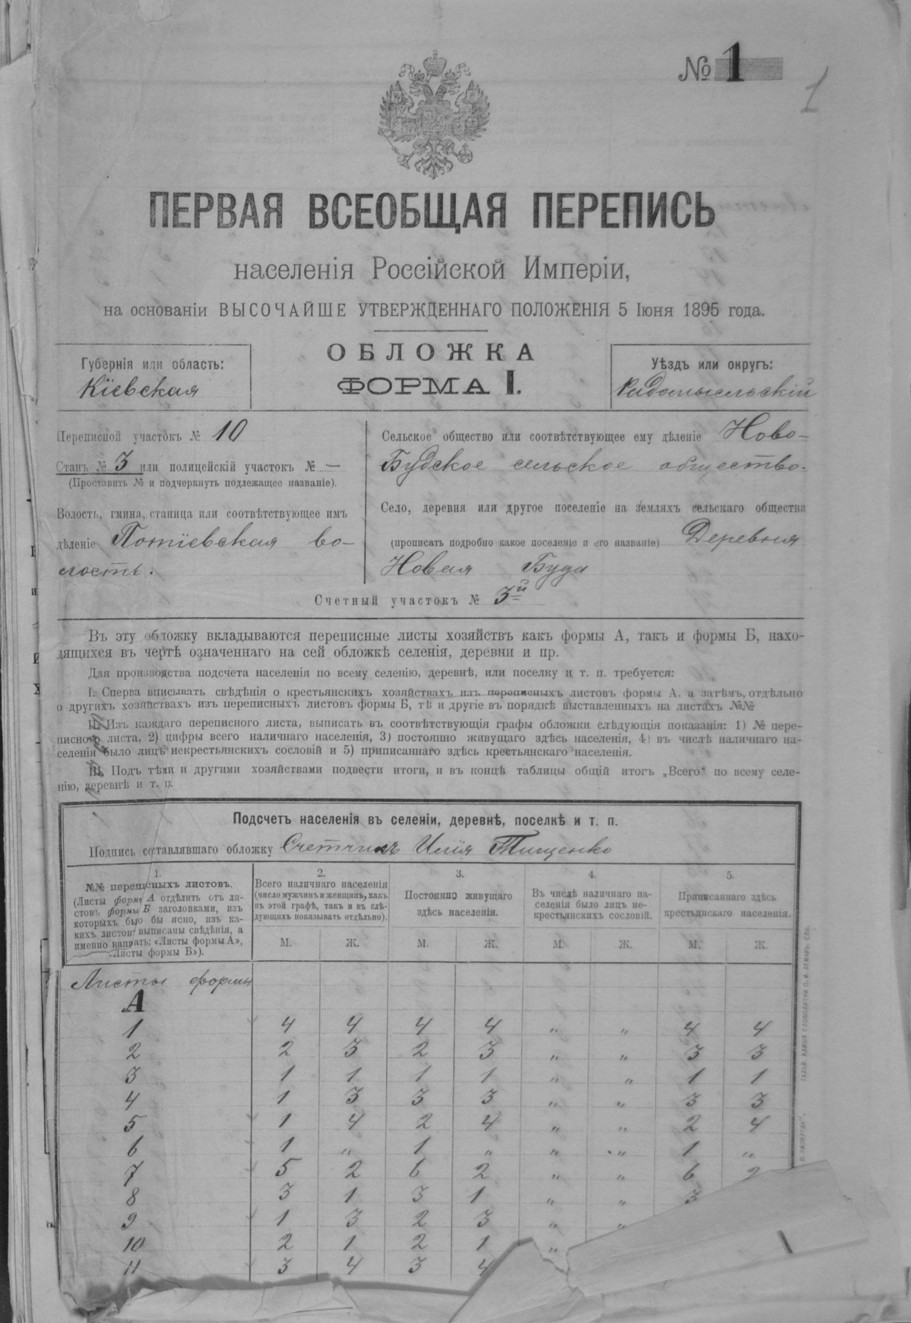 № 1
1
ПЕРВАЯ ВСЕОБЩАЯ ПЕРЕПИСЬ
населенія Россійской Имперіи,
на основаніи ВЫСОЧАЙШЕ УТВЕРЖДЕННАГО ПОЛОЖЕНІЯ 5 Іюня 1895 года.
Губернія или область:
Кіевская
ОБЛОЖКА
ФОРМА I.
Уѣздъ или округъ:
Радомысльскій
Переписной участокъ № 10
Станъ № 3 или полицейскій участокъ № —
(Проставить № и подчеркнуть подлежащее названіе).
Волость, гмина, станица или соотвѣтствующее имъ
дѣленіе Потіевская во-
лость.
Сельское общество или соотвѣтствующее ему дѣленіе Ново-
Будское сельское общество.
Село, деревня или другое поселеніе на земляхъ сельскаго общества
(прописать подробно какое поселеніе и его названіе) Деревня
Новая Буда
Счетный участокъ № 3й
Въ эту обложку вкладываются переписные листы хозяйствъ какъ формы А, такъ и формы Б, нахо-
дящихся въ чертѣ означеннаго на сей обложкѣ селенія, деревни и пр.
Для производства подсчета населенія по всему селенію, деревнѣ, или поселку и т. п. требуется:
I. Сперва вписывать свѣдѣнія о крестьянскихъ хозяйствахъ изъ переписныхъ листовъ формы А, а затѣмъ, отдѣльно
о другихъ хозяйствахъ изъ переписныхъ листовъ формы Б, тѣ и другіе въ порядкѣ выставленныхъ на листахъ №№
II. Изъ каждаго переписного листа, выписать въ соотвѣтствующія графы обложки слѣдующія показанія: 1) № пере-
писного листа, 2) цифры всего наличнаго населенія, 3) постоянно живущаго здѣсь населенія, 4) въ числѣ наличнаго на-
селенія было лицъ некрестьянскихъ сословій и 5) приписаннаго здѣсь крестьянскаго населенія.
III. Подъ тѣми и другими хозяйствами подвести итоги, и въ концѣ таблицы общій итогъ „Всего" по всему селе-
нію, деревнѣ и т. п.
Подсчетъ населенія въ селеніи, деревнѣ, поселкѣ и т. п.
Подпись составлявшаго обложку Счетчикъ Илія Тищенко
1.
№№ переписныхъ листовъ.
(Листы форму А отдѣлить отъ ли-
стовъ формы Б заголовками, изъ
которыхъ было бы ясно, изъ ка-
кихъ листовъ выписаны свѣдѣнія, а
именно написать: «Листы формы А»,
«Листы формы Б»).
2.
Всего наличнаго населенія
(число мужчинъ и женщинъ, какъ
въ этой графѣ, такъ и въ слѣ-
дующихъ показывать отдѣльно).
М. Ж.
3.
Постоянно живущаго
здѣсь населенія.
М. Ж.
4.
Въ числѣ наличнаго на-
селенія было лицъ не-
крестьянскихъ сословій.
М. Ж.
5.
Приписаннаго здѣсь
крестьянскаго населенія.
М. Ж.
Листы формы
А
1 4 4 4 4 „ „ 4 4
2 2 3 2 3 „ „ 3 3
3 1 1 1 1 „ „ 1 1
4 1 3 3 3 „ „ 3 3
5 1 4 2 4 „ „ 2 4
6 1 „ 1 „ „ „ 1 „
7 5 2 6 2 „ „ 6 2
8 3 1 3 1 „ „ 3
9 1 3 2 3 „ „
10 2 1 2 1 „
11 3 4 3 4